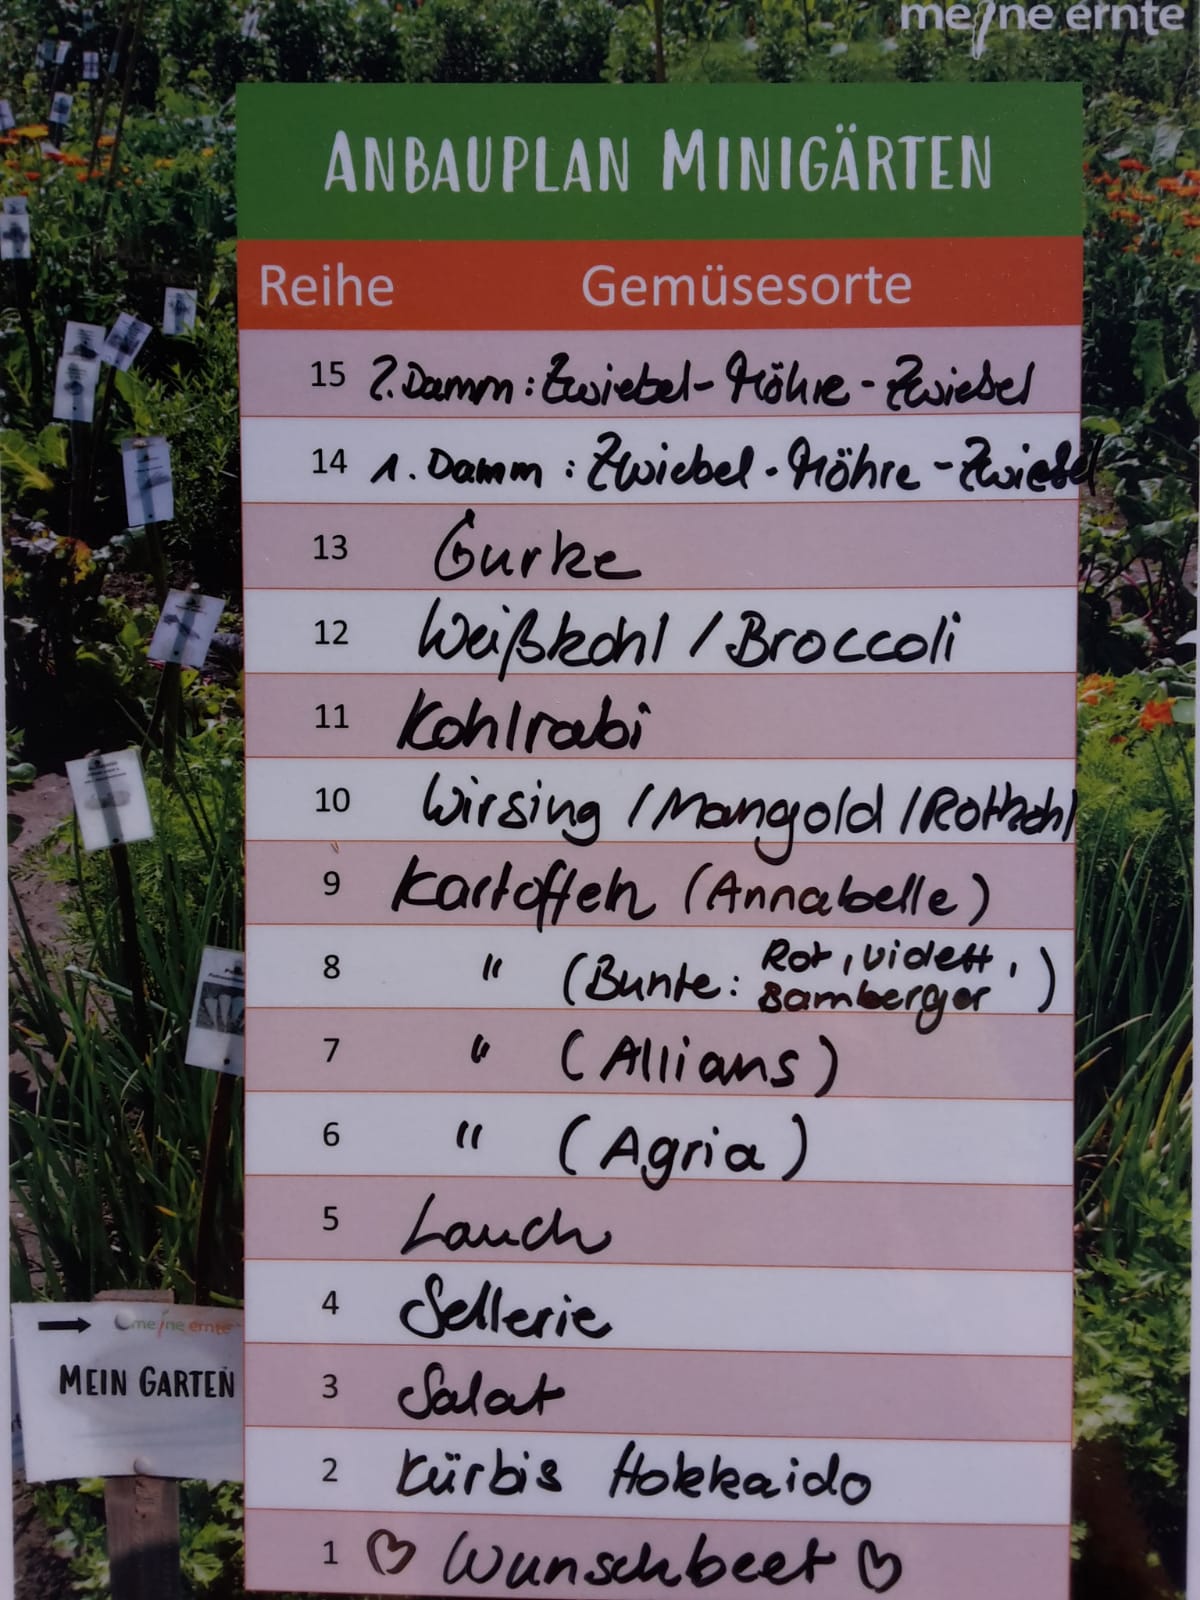 meine ernte
ANBAUPLAN MINIGÄRTEN
Reihe Gemüsesorte
15 2. Damm: Zwiebel-Möhre-Zwiebel
14 1. Damm: Zwiebel-Möhre-Zwiebel
13 Gurke
12 Weißkohl / Broccoli
11 Kohlrabi
10 Wirsing / Mangold / Rotkohl
9 Kartoffeln (Annabelle)
8 " (Bunte: Rot, violett,
Bamberger)
7 " (Allians)
6 " (Agria)
5 Lauch
4 Sellerie
3 Salat
2 Kürbis Hokkaido
1 ♡ Wunschbeet ♡
→ meine ernte
MEIN GARTEN